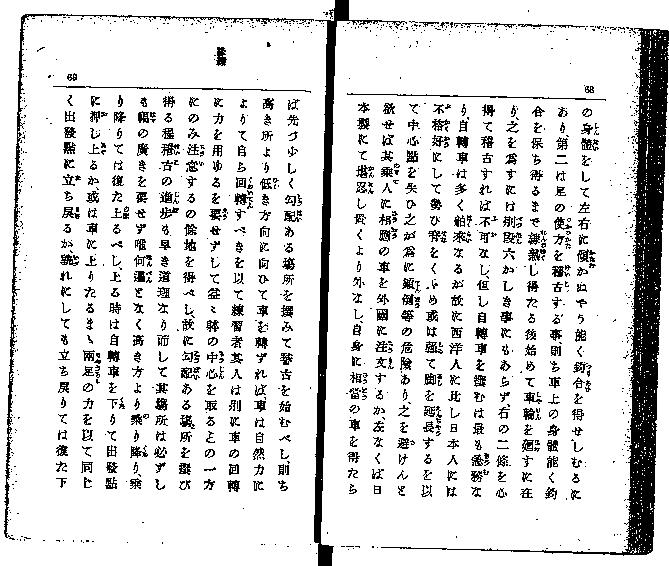 68
の身體をして左右に傾かぬやう能く鈞合を得せしむるに
あり、第二は足の使方を稽古する事則ち車上の身體能く鈞
合を保ち得るまで練熟し得たる後始めて車輪を廻すに在
り、之を爲すには別段六かしき事にもあらず右の二條を心
得て稽古すれば不可なし、但し自轉車を擇むは最も急務な
り、自轉車は多く舶來なるが故に西洋人に比し日本人には
不格好にして勢ひ脊をくゞめ或は强て脚を延長するを以
て中心點を失ひ之が爲に顚倒等の危險あり、之を避けんと
欲せば其乘人に相應の車を外國に注文するか左なくば日
本製にて堪忍し置くより外なし、自身に相當の車を得たら
69
ば先づ少しく勾配ある塲所を擇みて稽古を始むべし則ち
高き所より低き方向に向ひて車を轉ずれば車は自然力に
よりて自ら回轉すべきを以て練習者其人は別に車の回轉
に力を用ゆるを要せずして益々躰の中心を取るとの一方
にのみ注意するの餘地を得べし、故に勾配ある塲所を選び
得る程稽古の進步も早き道理なり而して其塲所は必ずし
も幅の廣きを要せず唯何邊となく高き方より乘り降り、乘
り降りては復た上るべし、上る時は自轉車を下りて出發點
に押し上るか或は車に上りたるまゝ兩足の力を以て同じ
く出發點に立ち戾るか、孰れにしても立ち戾りては復た下